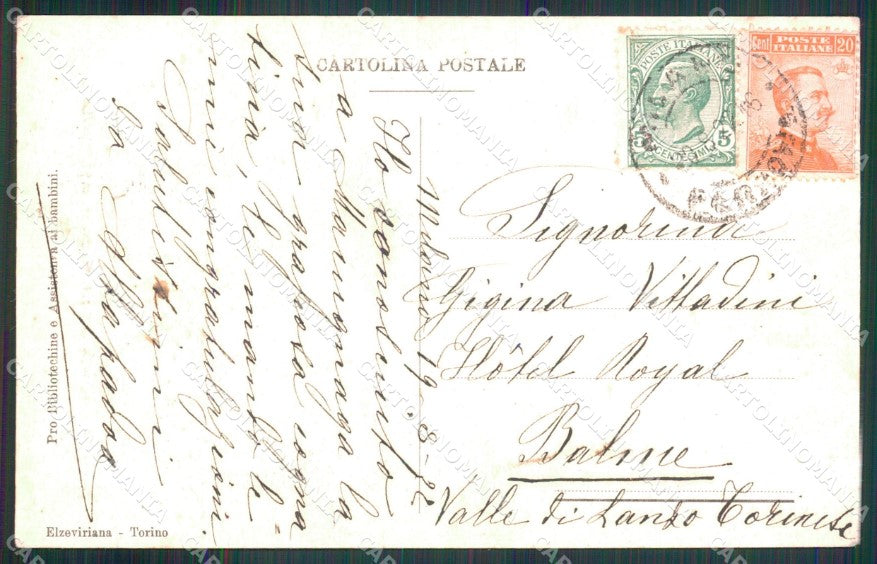 CARTOLINA POSTALE
POSTE ITALIANE
5 CENTESIMI 5
Cent POSTE ITALIANE 20
Milano 19-8-22
Ho conosciuto
a Marignaga la
sua graziosa cogna
tina, le mando le
mie congratulazioni.
Saluti
La
Signorina
Gigina Vittadini
Hôtel Royal
Balme
Valle di Lanzo Torinese
Pro Bibliotechine e Assistenza ai bambini.
Elzeviriana - Torino
CARTOLINOMANIA